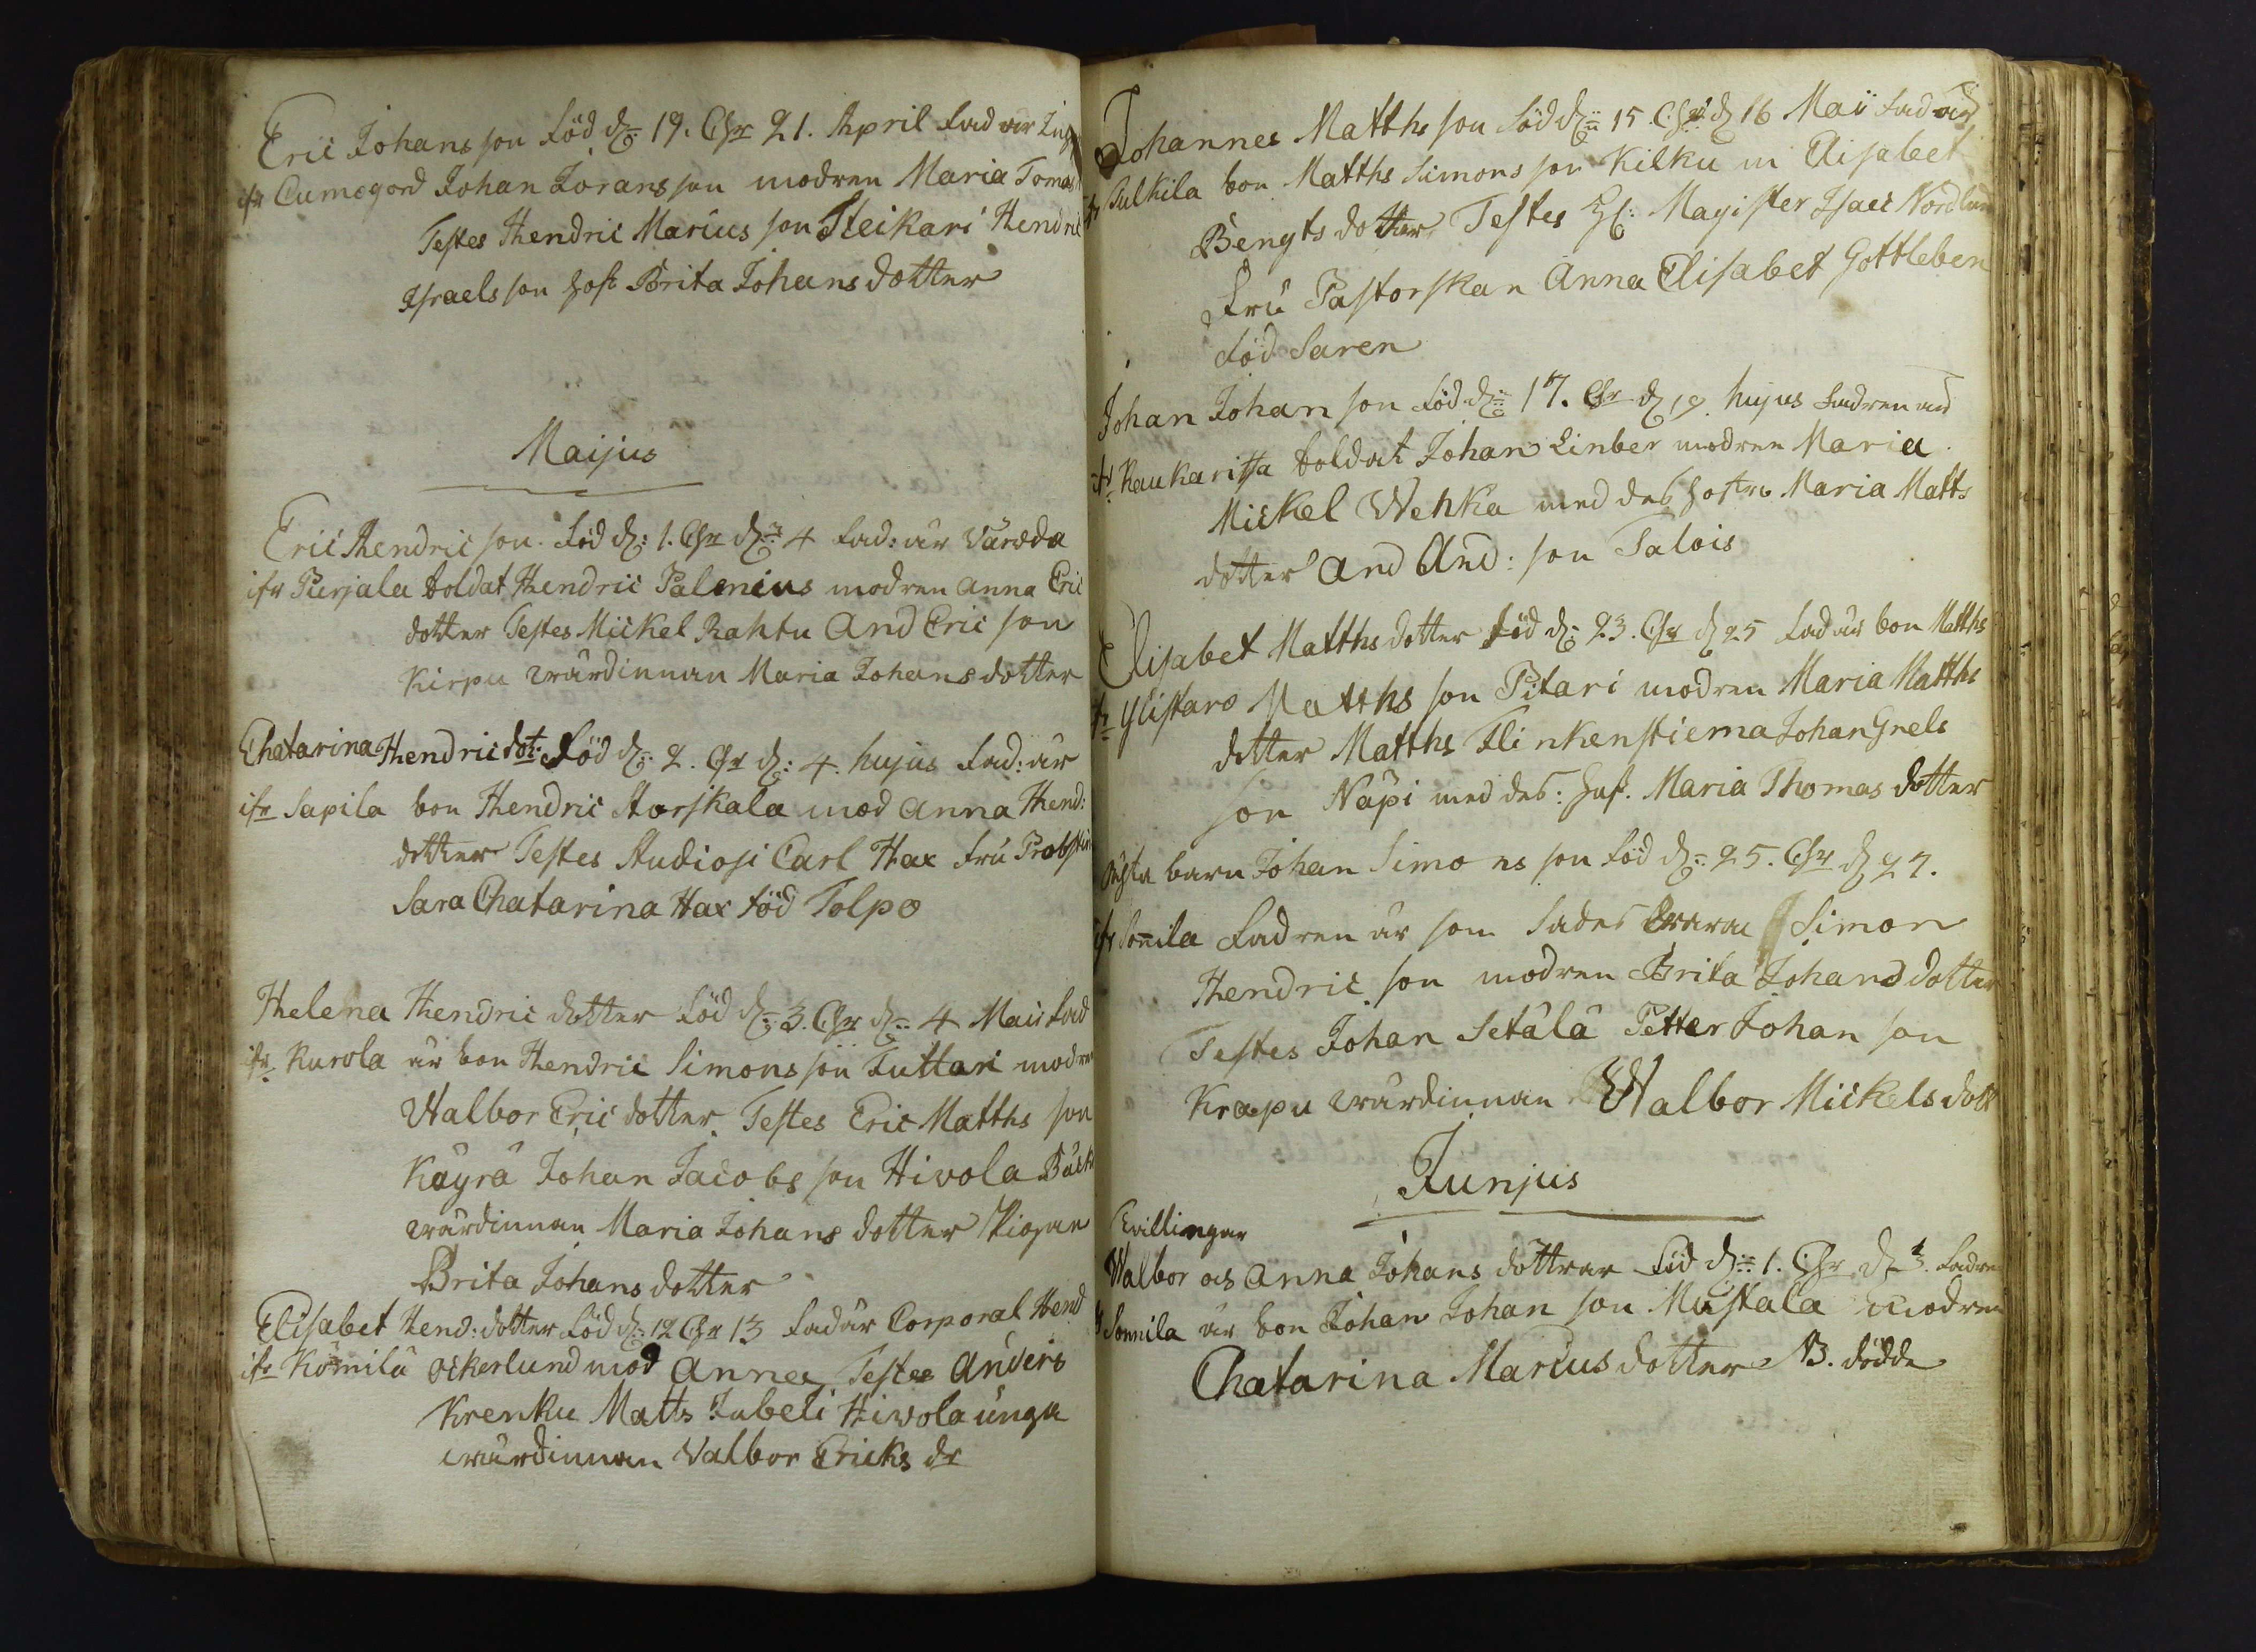 Eric Johans son född d: 19. Chr 21. April fad är
ifr Cumogord Johan Jörans son modren Maria Tomas
Testes Hendric Marcus son Steikari Hendric
Israels son Brita Johans dotter
Maijus
Eric Hendric son. föd d: 1. Chr d: 4 fad: är
ifr Pierjala soldat Hendric Palenius modren Anna Eric
dotter Testes Mickel Rahtu And Eric son
Kirpu wärdinnan Maria Johans dotter
Chatarina Hendric dot: föd d: 2. Chr d: 4. hujus fad: är
ifr Sapila bon Hendric Horskala mod Anna Hend:
dotter Testes Studiosi Carl Hax fru Probst
Sara Chatarina Hax föd Polpo
Helena Hendric dotter föd d: 3. Chr d: 4 Maii fad
ifr Kurola är bon Hendric Simons son Tuttari modren
Walbor Eric dotter. Testes Eric Matths son
Käyrä Johan Jacobs son Hivola
wärdinnan Maria Johans dotter Pigan
Brita Johans dotter
Elisabet Hend: dotter föd d: 12 Chr 13 fad är Corporal Hend
ifr Kömilä Ockerlund mod Anna Testes Anders
Krenku Matts Jubeli Hivola unga
wärdinnan Valbor Ericks dr
Johannes Matths son föd d: 15 Chr d 16 Maii fad är
ifr Sulkila bon Matths Simons son Kilku m Elisabet
Bengts dotter Testes H: Magister Isaac Nordlun
Fru Pastorskan Anna Elisabet Gottleben
född Saren
Johan Johan son föd d: 17. Chr d 19. hujus fadren är
ifr Kaukaritsa soldat Johan Linber modren Maria
Mickel Wehka med des hostro Maria Matts
dotter And And: son Talois
Elisabet Matths dotter föd d: 23. Chr d 25 fad är bon Matths
ifr Ylistaro Matths son Pitari modren Maria Matths
dotter Matths Flinkenstierna Johan Grels
son Näpi med des: Hust. Maria Thomas dotter
oägta barn Johan Simons son föd d: 25. Chr d 27.
ifr Sonnila fadren är som sades Simon
Hendric son modren Brita Johans dotter
Testes Johan Setälä Petter Johan son
Krapu wärdinnan Walbor Mickels dott
Junjus
Tvillingar
Walbor och Anna Johans döttrar föd d: 1. Chr d 3. fadren
ifr Sonnila är bon Johan Johan son Mustala modren
Chatarina Marcus dotter B. dödde